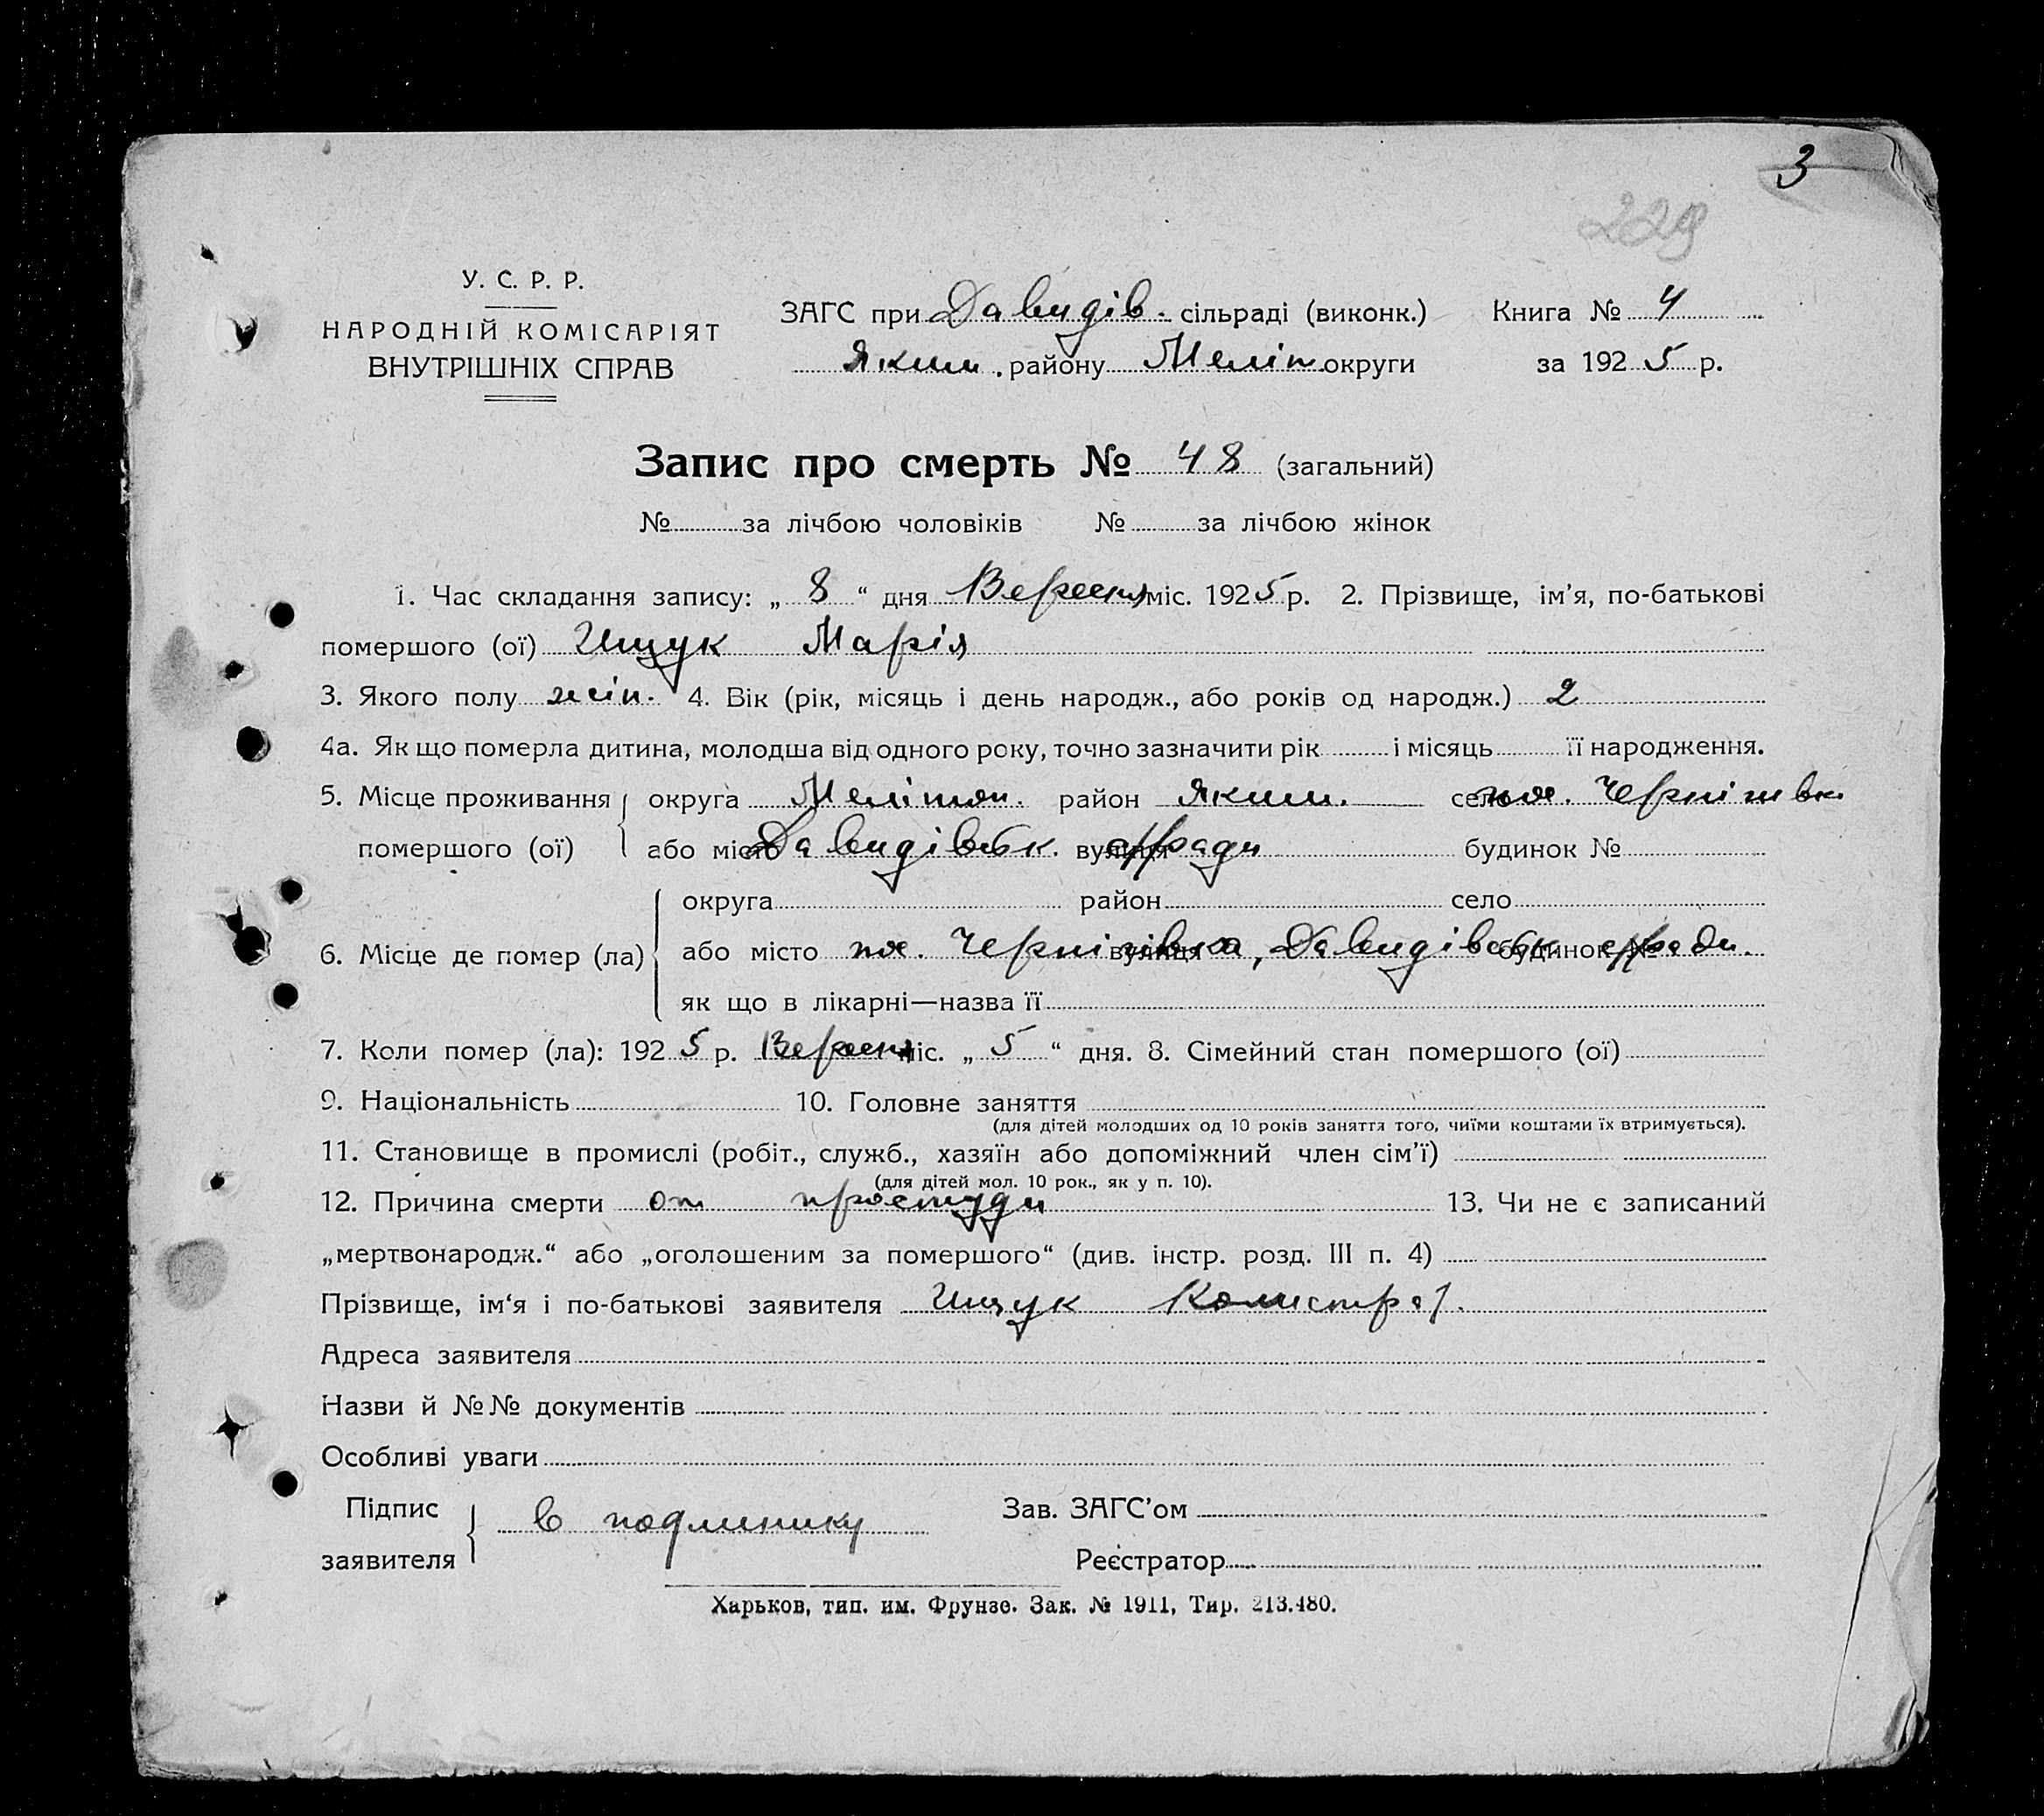 3
229
У. С. Р. Р.
НАРОДНІЙ КОМІСАРІЯТ
ВНУТРІШНІХ СПРАВ
ЗАГС при Давидів. сільраді (виконк.) Книга № 4
Яким. району Меліп округи за 1925 р.
Запис про смерть № 48 (загальний)
№ за лічбою чоловіків № за лічбою жінок
1. Час складання запису: „ 8 “ дня Вересня міс. 1925 р. 2. Прізвище, ім’я, по-батькові
помершого (ої) Ищук Марія
3. Якого полу жін. 4. Вік (рік, місяць і день народж., або років од народж.) 2
4а. Як що померла дитина, молодша від одного року, точно зазначити рік і місяць її народження.
5. Місце проживання округа Мелітоп. район Яким. село пос. Чернігівк
помершого (ої) або місто Давидівськ. вулиця с/ради будинок №
округа район село
6. Місце де помер (ла) або місто пос. Чернігівка, вулиця Давидівськ будинок № с/ради.
як що в лікарні—назва її
7. Коли помер (ла): 1925 р. Вересня міс. „ 5 “ дня. 8. Сімейний стан помершого (ої)
9. Національність 10. Головне заняття
(для дітей молодших од 10 років заняття того, чиїми коштами їх втримується).
11. Становище в промислі (робіт., служб., хазяїн або допоміжний член сім’ї)
(для дітей мол. 10 рок., як у п. 10).
12. Причина смерти от простуди 13. Чи не є записаний
„мертвонародж.“ або „оголошеним за помершого“ (див. інстр. розд. III п. 4)
Прізвище, ім‘я і по-батькові заявителя Ищук Калистрат.
Адреса заявителя
Назви й №№ документів
Особливі уваги
Підпис заявителя в подлинику Зав. ЗАГС’ом
Реєстратор
Харьков, тип. им. Фрунзе. Зак. № 1911, Тир. 213.480.